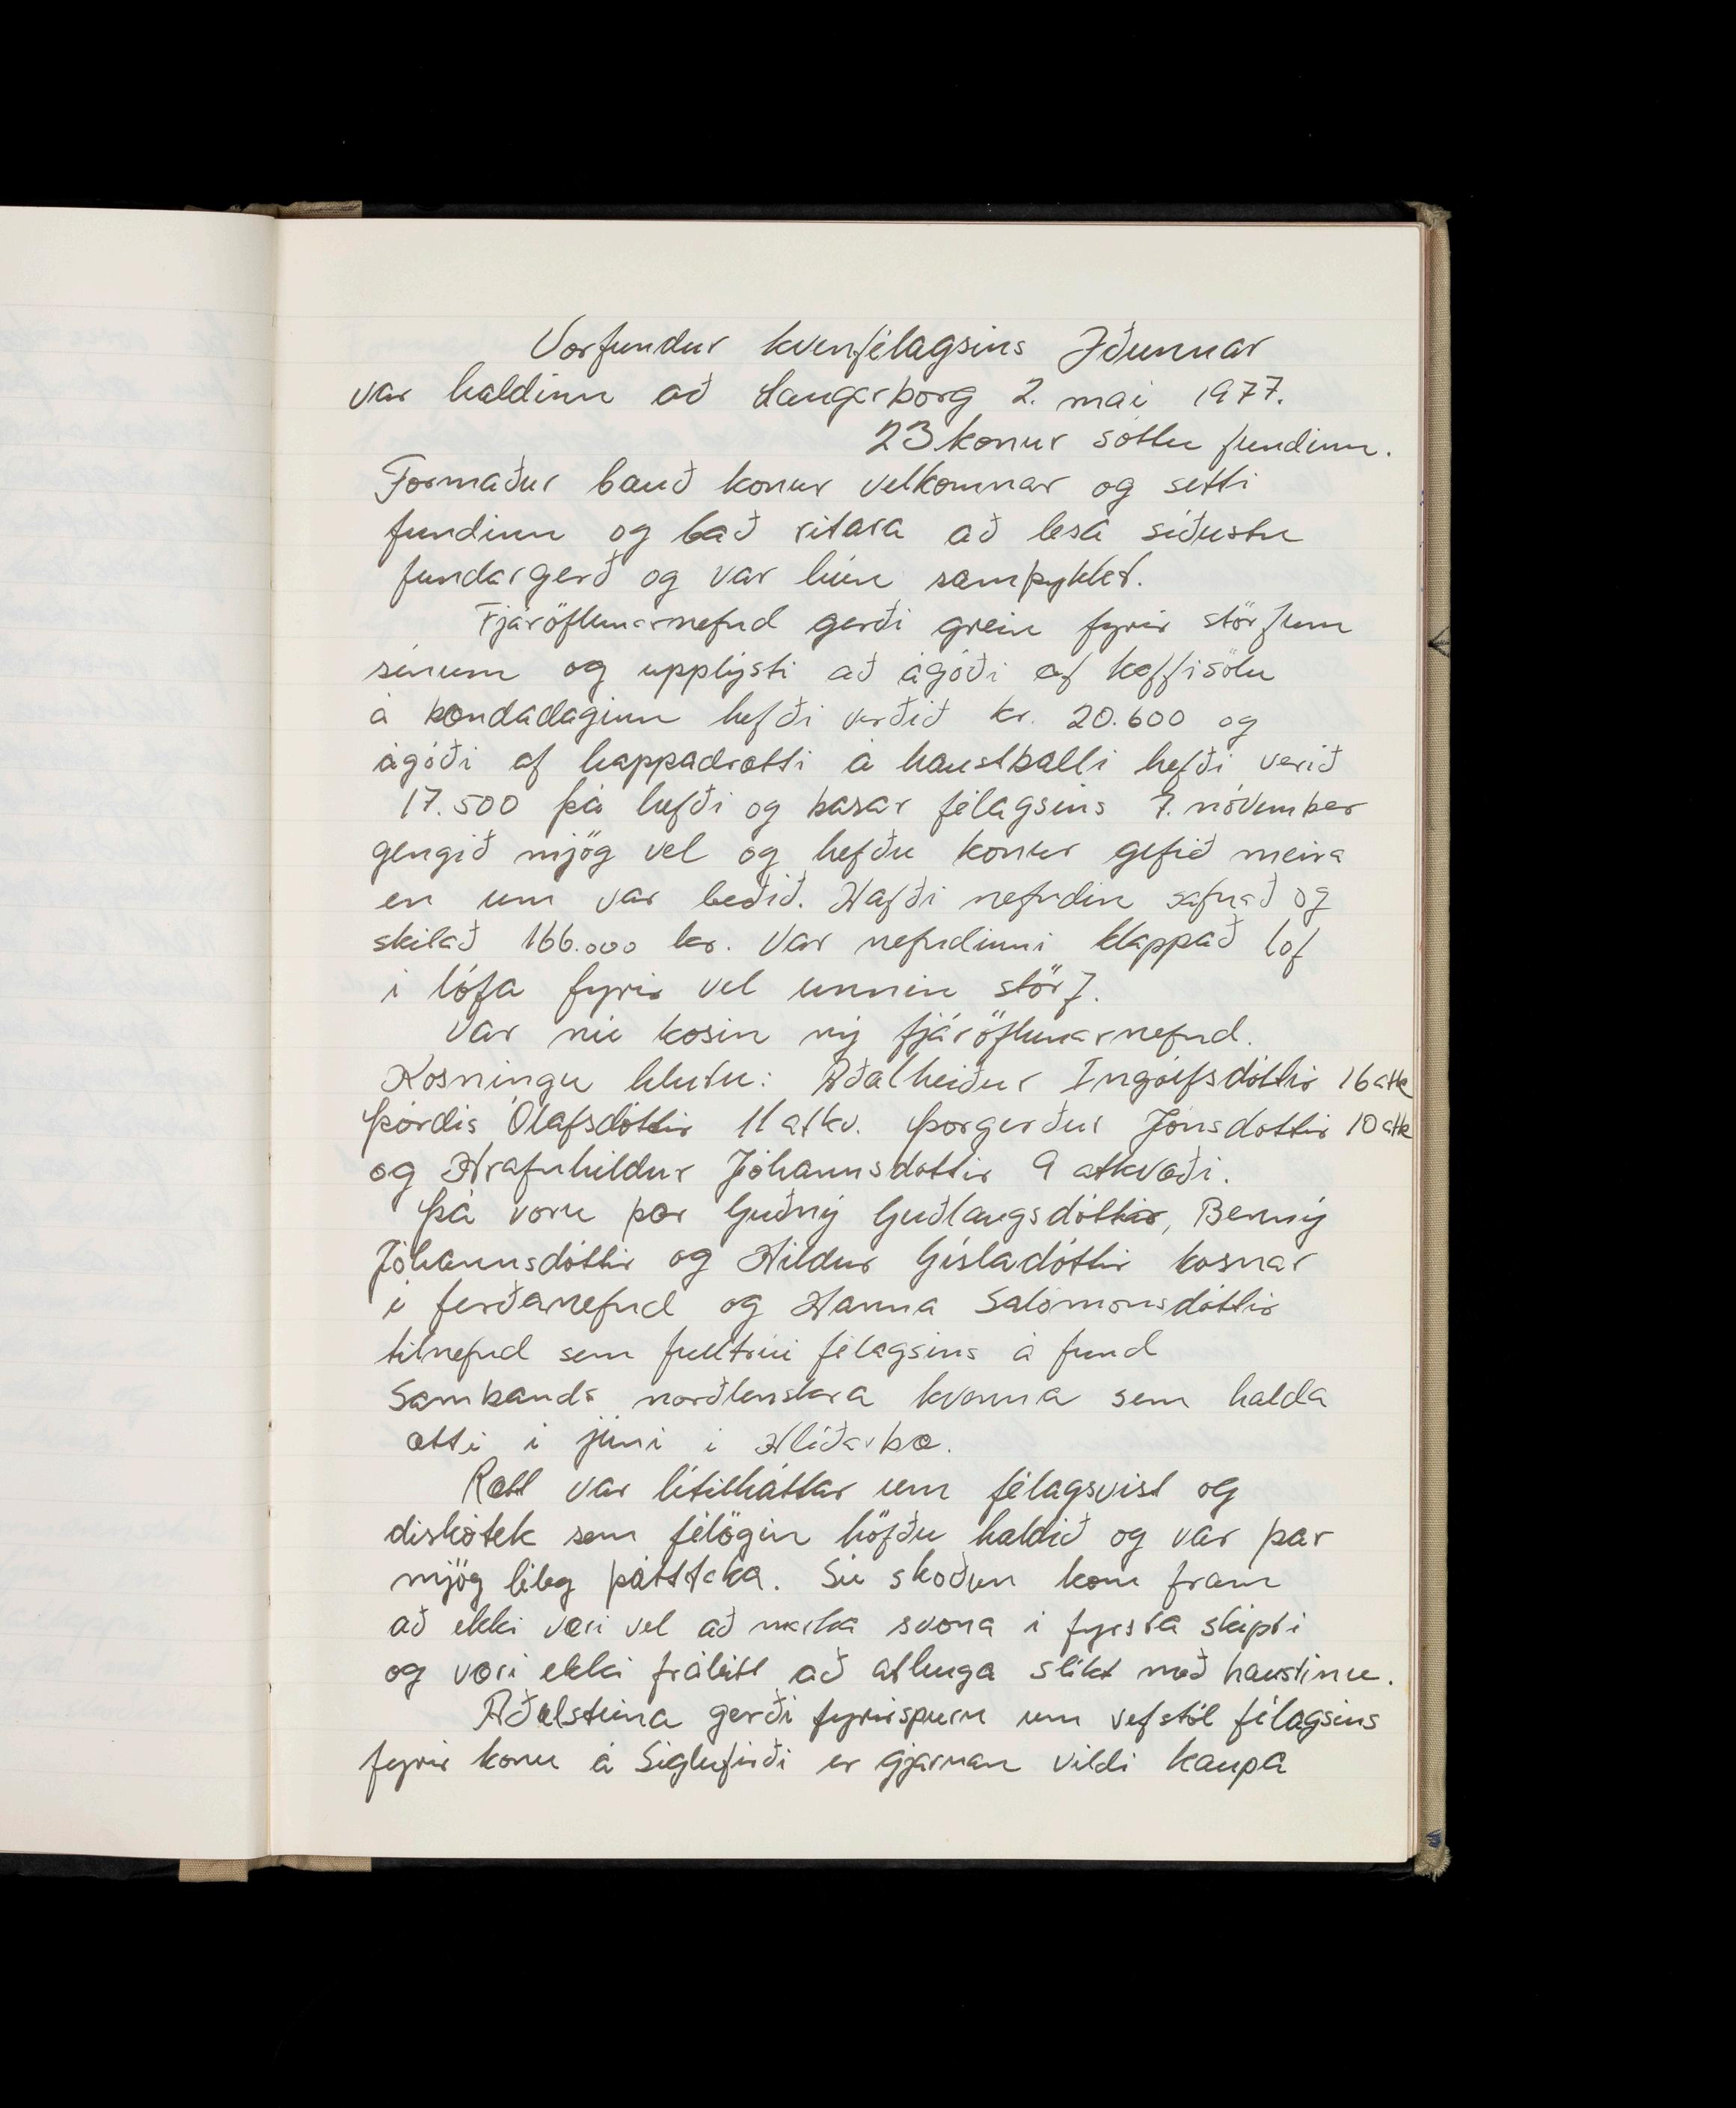 Vorfundur kvenfélagsins Iðunnar
var haldinn að Laugarborg 2. maí 1977.
23 konur sóttu fundinn.
Formaður bauð konur velkomnar og setti
fundinn og bað ritara að lesa síðustu
fundargerð og var hún samþykkt.
Fjáröflunarnefnd gerði grein fyrir störfum
sínum og upplýsti að ágóði af kaffisölu
á bændadaginn hefði verðið kr. 20.600 og
ágóði af happadrætti á haustballi hefði verið
17.500 þá hefði og basar félagsins 7. nóvember
gengið mjög vel og hefðu konur gefið meira
en um var beðið. Hafði nefndin safnað og
skilað 166.000 kr. Var nefndinni klappað lof
í lófa fyrir vel unnin störf.
Var nú kosin ný fjáröflunarnefnd.
Kosningu hlutu: Aðalheiður Ingólfsdóttir 16 atk
Þórdís Ólafsdóttir 11 atkv. Þorgerður Jónsdóttir 10 atk
og Hrafnhildur Jóhannsdóttir 9 atkvæði.
Þá voru þær Guðný Guðlaugsdóttir, Benný
Jóhannsdóttir og Hildur Gísladóttir kosnar
í ferðanefnd og Hanna Salómonsdóttir
tilnefnd sem fulltrúi félagsins á fund
Sambands norðlenskra kvenna sem halda
ætti í júní í Hlíðarbæ.
Rætt var lítilháttar um félagsvist og
diskótek sem félögin höfðu haldið og var þar
mjög léleg þátttaka. Sú skoðun kom fram
að ekki væri vel að marka svona í fyrsta skipti
og væri ekki fráleitt að athuga slíkt með haustinu.
Aðalsteina gerði fyrirspurn um vefstól félagsins
fyrir konu á Siglufirði er gjarnan vildi kaupa